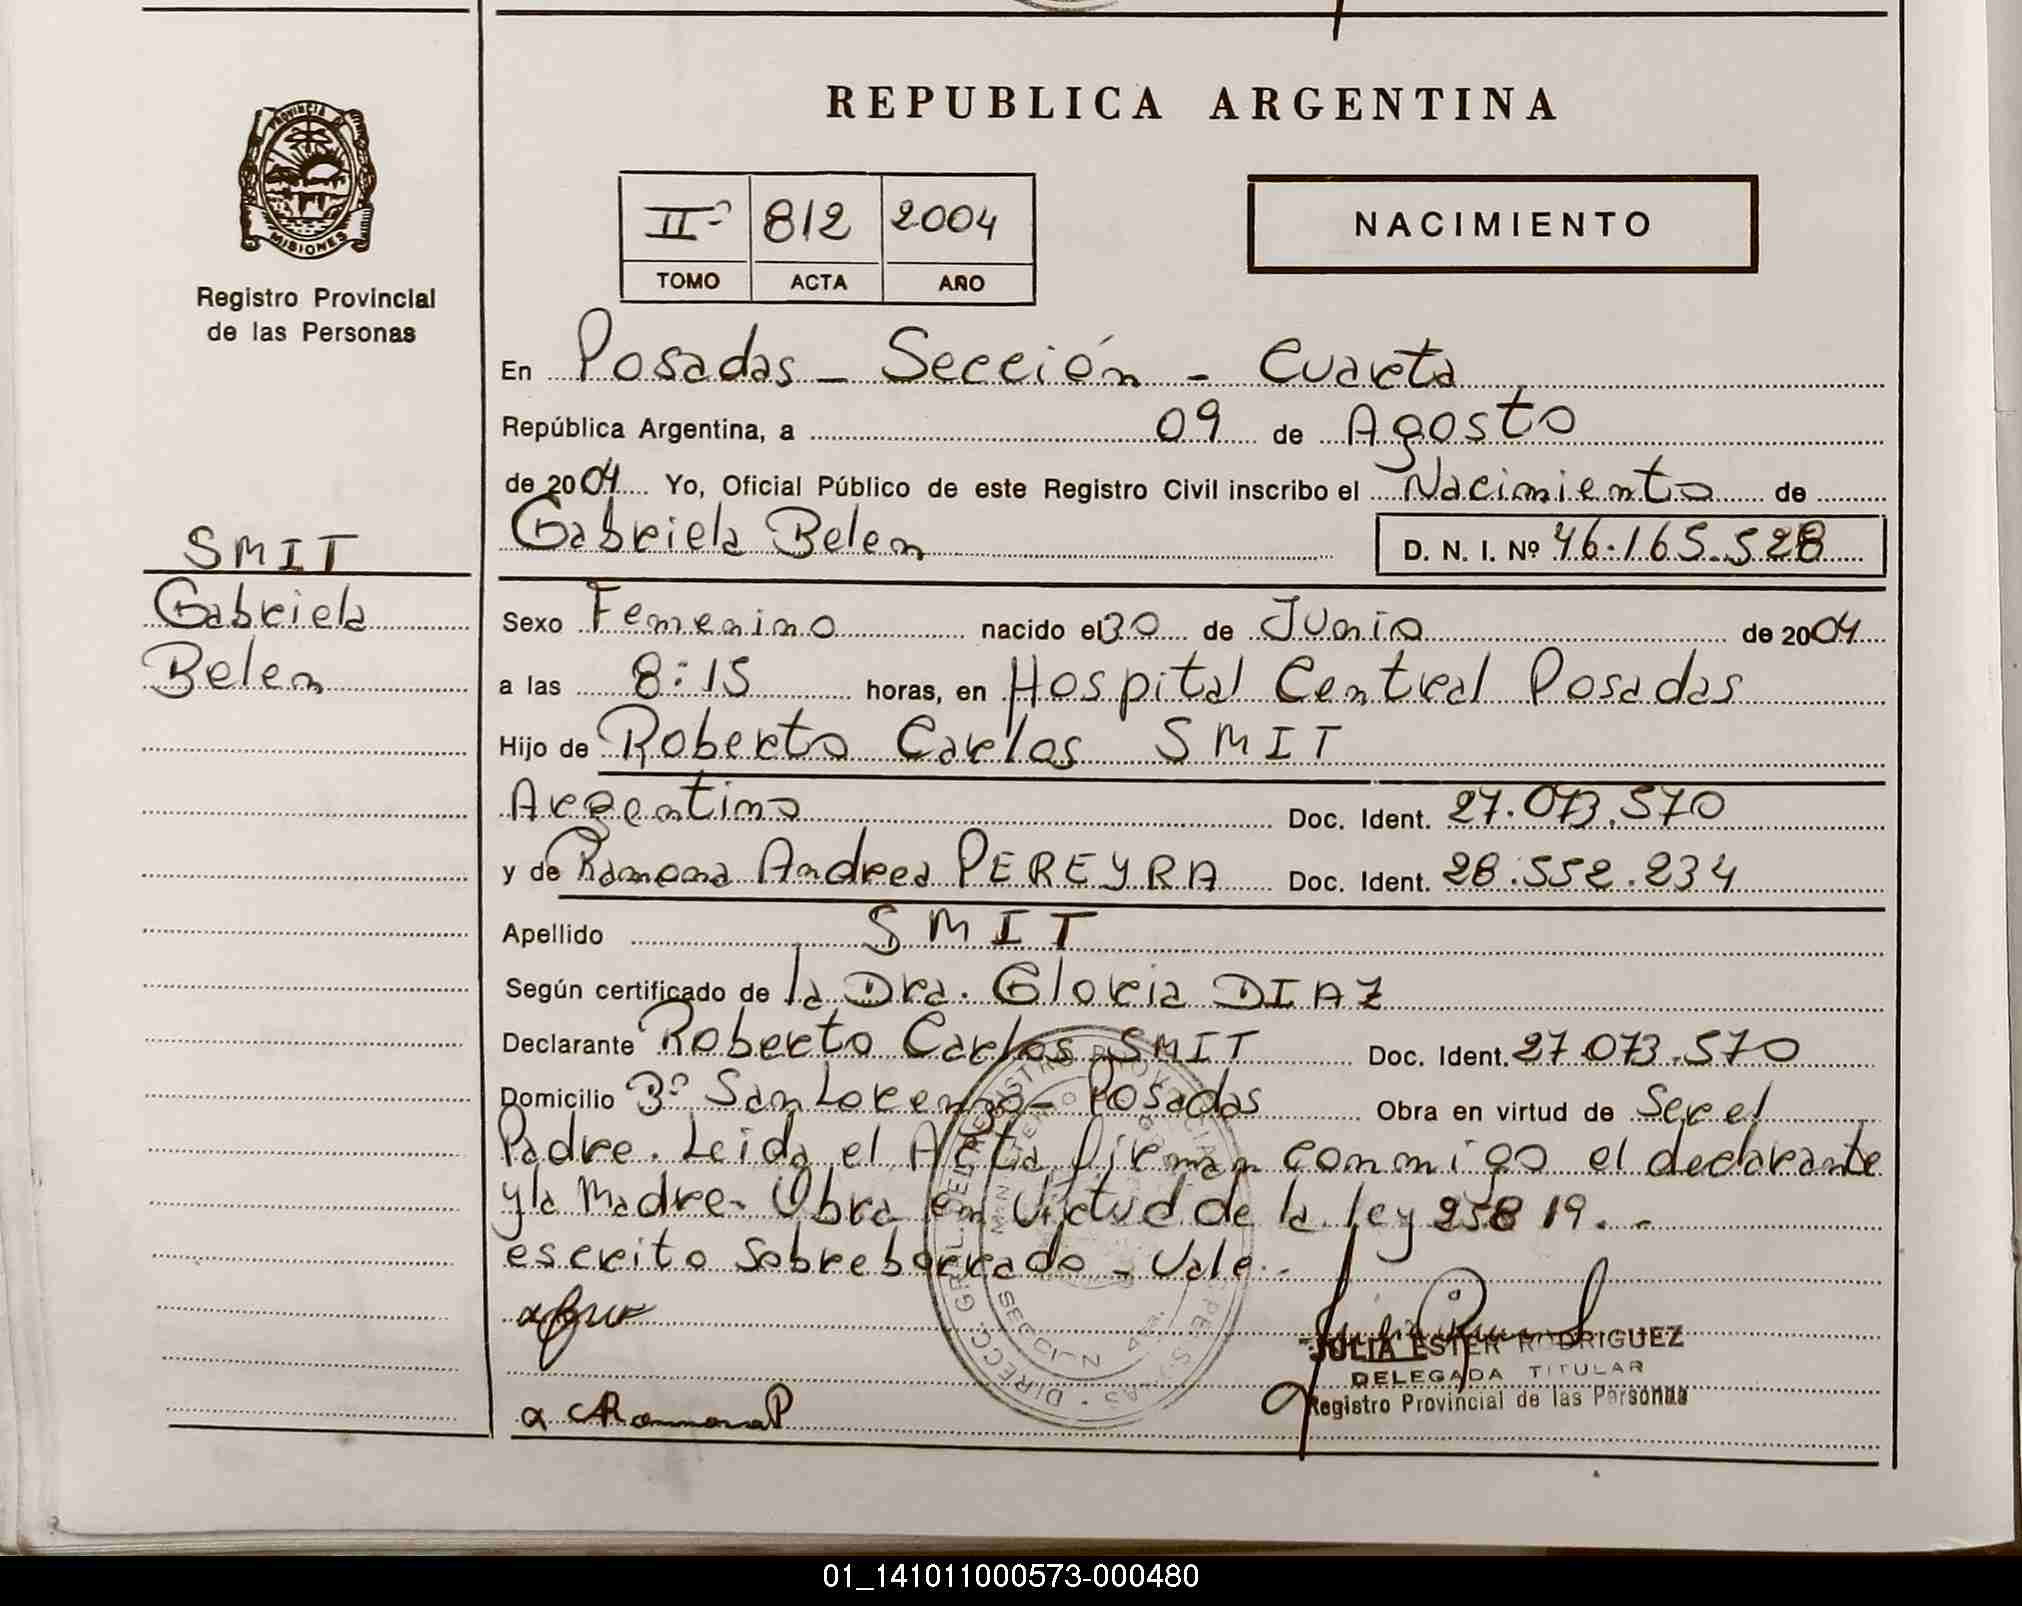 REPUBLICA ARGENTINA
PROVINCIA DE
MISIONES
Registro Provincial
de las Personas
IIº 812 2004
TOMO ACTA AÑO
NACIMIENTO
En Posadas - Sección - Cuarta
República Argentina, a 09 de Agosto
de 2004 Yo, Oficial Público de este Registro Civil inscribo el Nacimiento de
Gabriela Belen D. N. I. Nº 46.165.528
SMIT
Gabriela
Belen
Sexo Femenino nacido el 30 de Junio de 2004
a las 8:15 horas, en Hospital Central Posadas
Hijo de Roberto Carlos SMIT
Argentino Doc. Ident. 27.073.570
y de Ramona Andrea PEREYRA Doc. Ident. 28.552.234
Apellido SMIT
Según certificado de la Dra. Gloria DIAZ
Declarante Roberto Carlos SMIT Doc. Ident. 27.073.570
Domicilio Bº San Lorenzo - Posadas Obra en virtud de Ser el
Padre. Leida el Acta firman conmigo el declarante
y la Madre - Obra en Virtud de la ley 25819. -
escrito Sobreborrado - Vale. -
Ramona P
JULIA ESTER RODRIGUEZ
DELEGADA TITULAR
Registro Provincial de las Personas
01_141011000573-000480